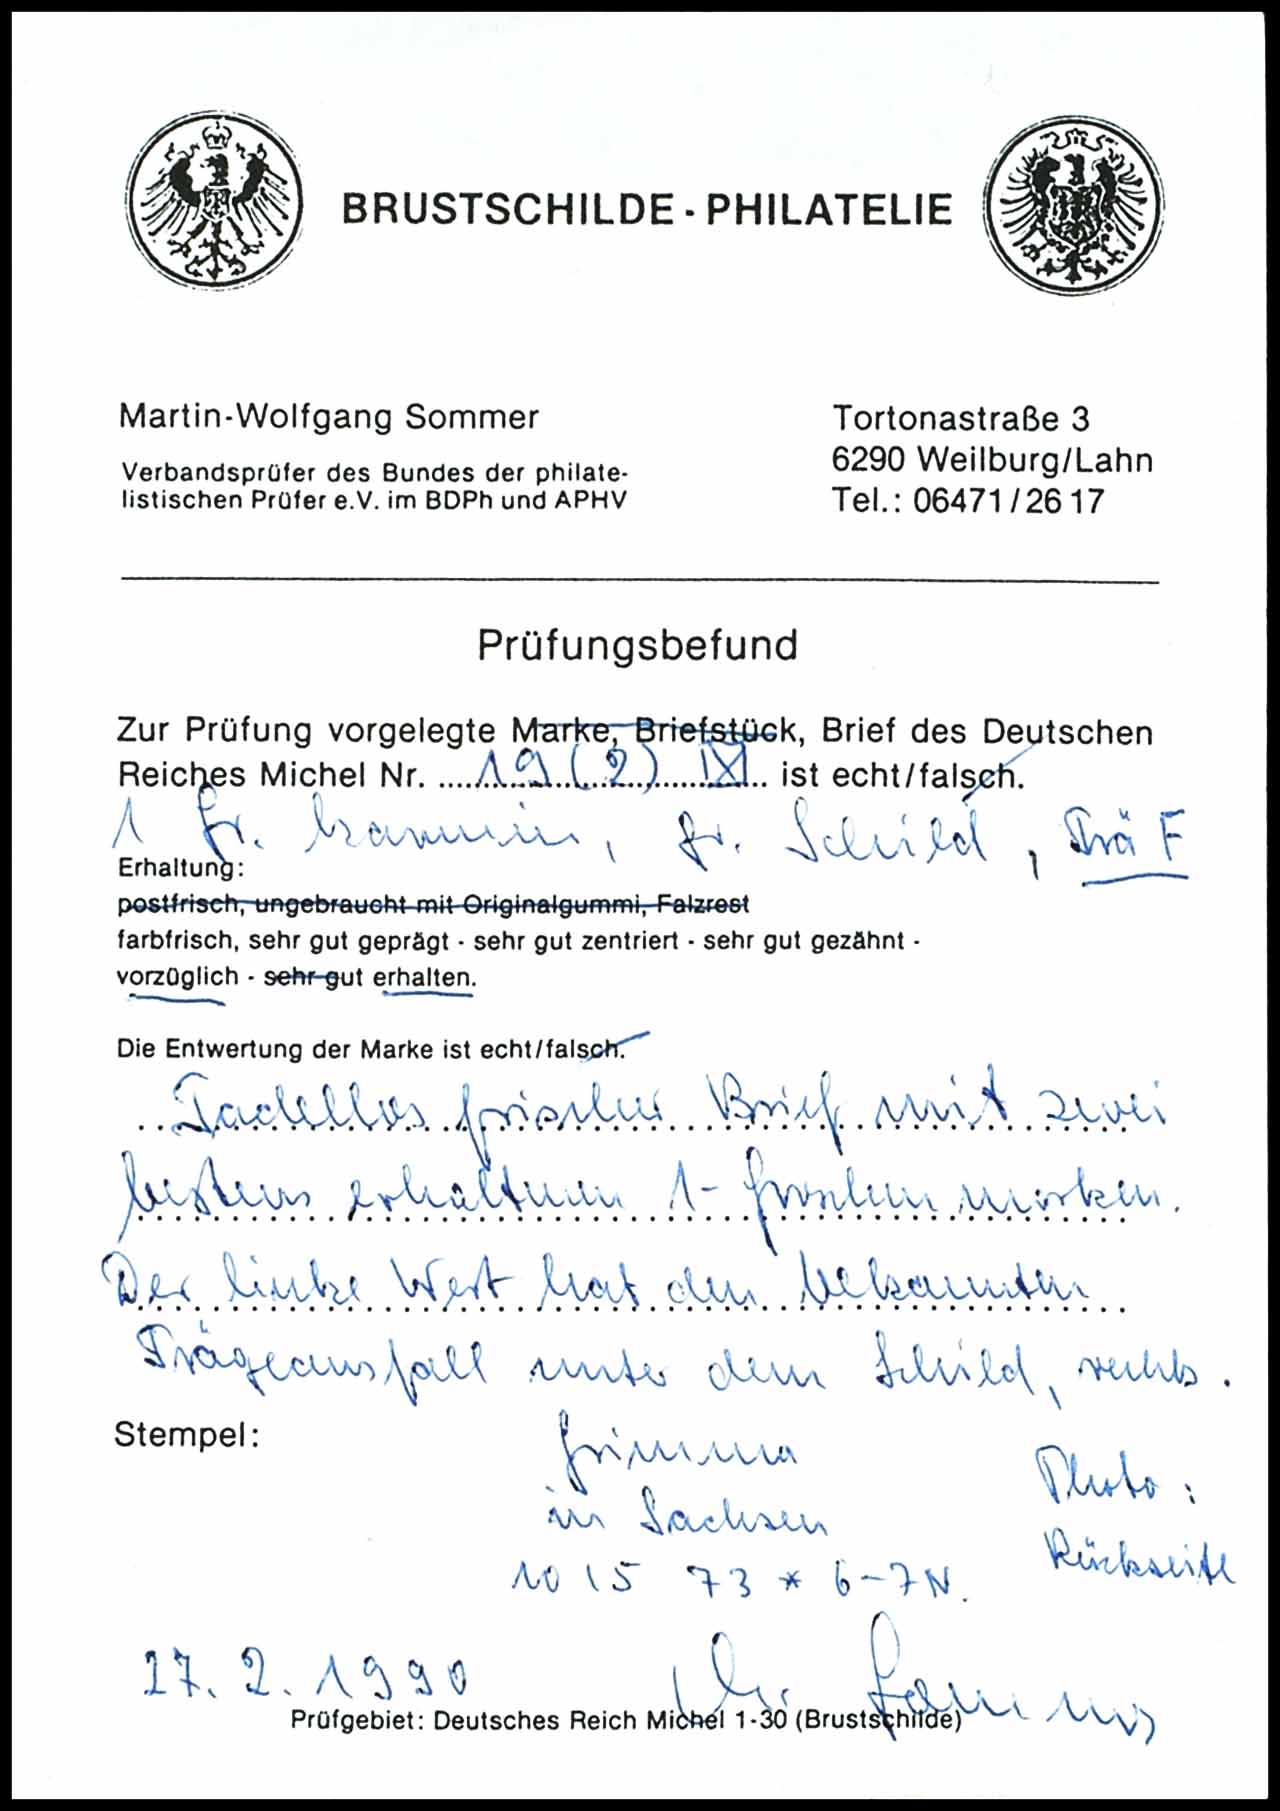 BRUSTSCHILDE - PHILATELIE
Martin-Wolfgang Sommer
Verbandsprüfer des Bundes der philate-
listischen Prüfer e.V. im BDPh und APHV
Tortonastraße 3
6290 Weilburg/Lahn
Tel.: 06471/26 17
Prüfungsbefund
Zur Prüfung vorgelegte Marke, Briefstück, Brief des Deutschen
Reiches Michel Nr. 19 (2) IX ist echt/falsch.
1 Gr. karmin, gr. Schild, Trä F
Erhaltung:
postfrisch, ungebraucht mit Originalgummi, Falzrest
farbfrisch, sehr gut geprägt - sehr gut zentriert - sehr gut gezähnt -
vorzüglich - sehr gut erhalten.
Die Entwertung der Marke ist echt/falsch.
Tadellos frischer Brief mit zwei
bestens erhaltenen 1-Groschen marken.
Der linke Wert hat den bekannten
Prägeausfall unter dem Schild, rechts.
Stempel:
Grimma
in Sachsen
10 15 73 * 6-7N.
Photo:
Rückseite
27.2.1990
Sommer
Prüfgebiet: Deutsches Reich Michel 1-30 (Brustschilde)